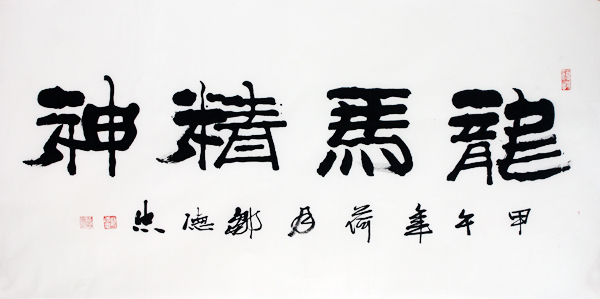 龍馬精神
甲午年荷月鄒德忠